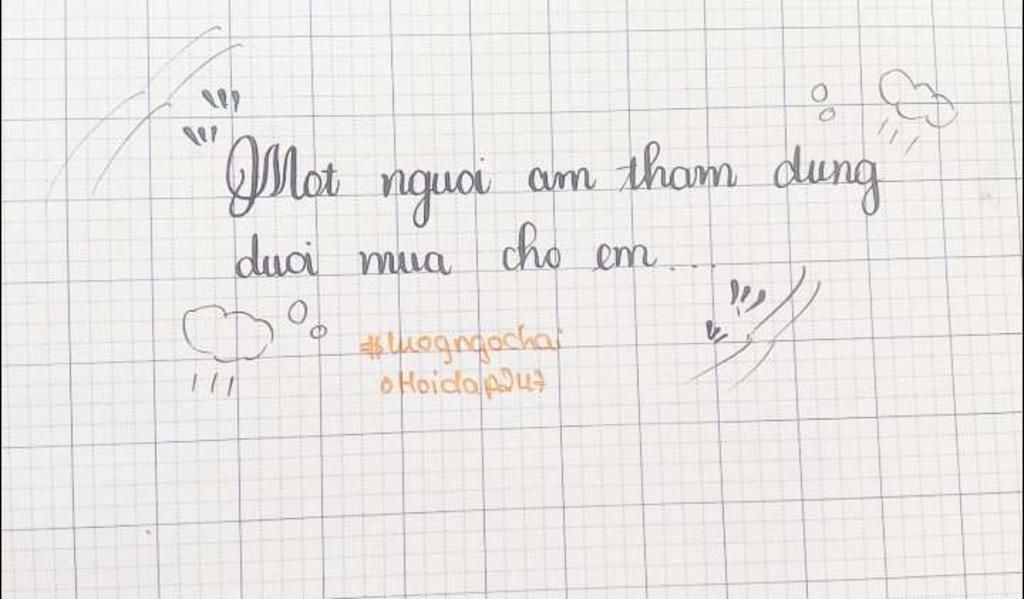 Mot nguoi am tham dung
duoi mua cho em...
#luogngochai
oHoidap247